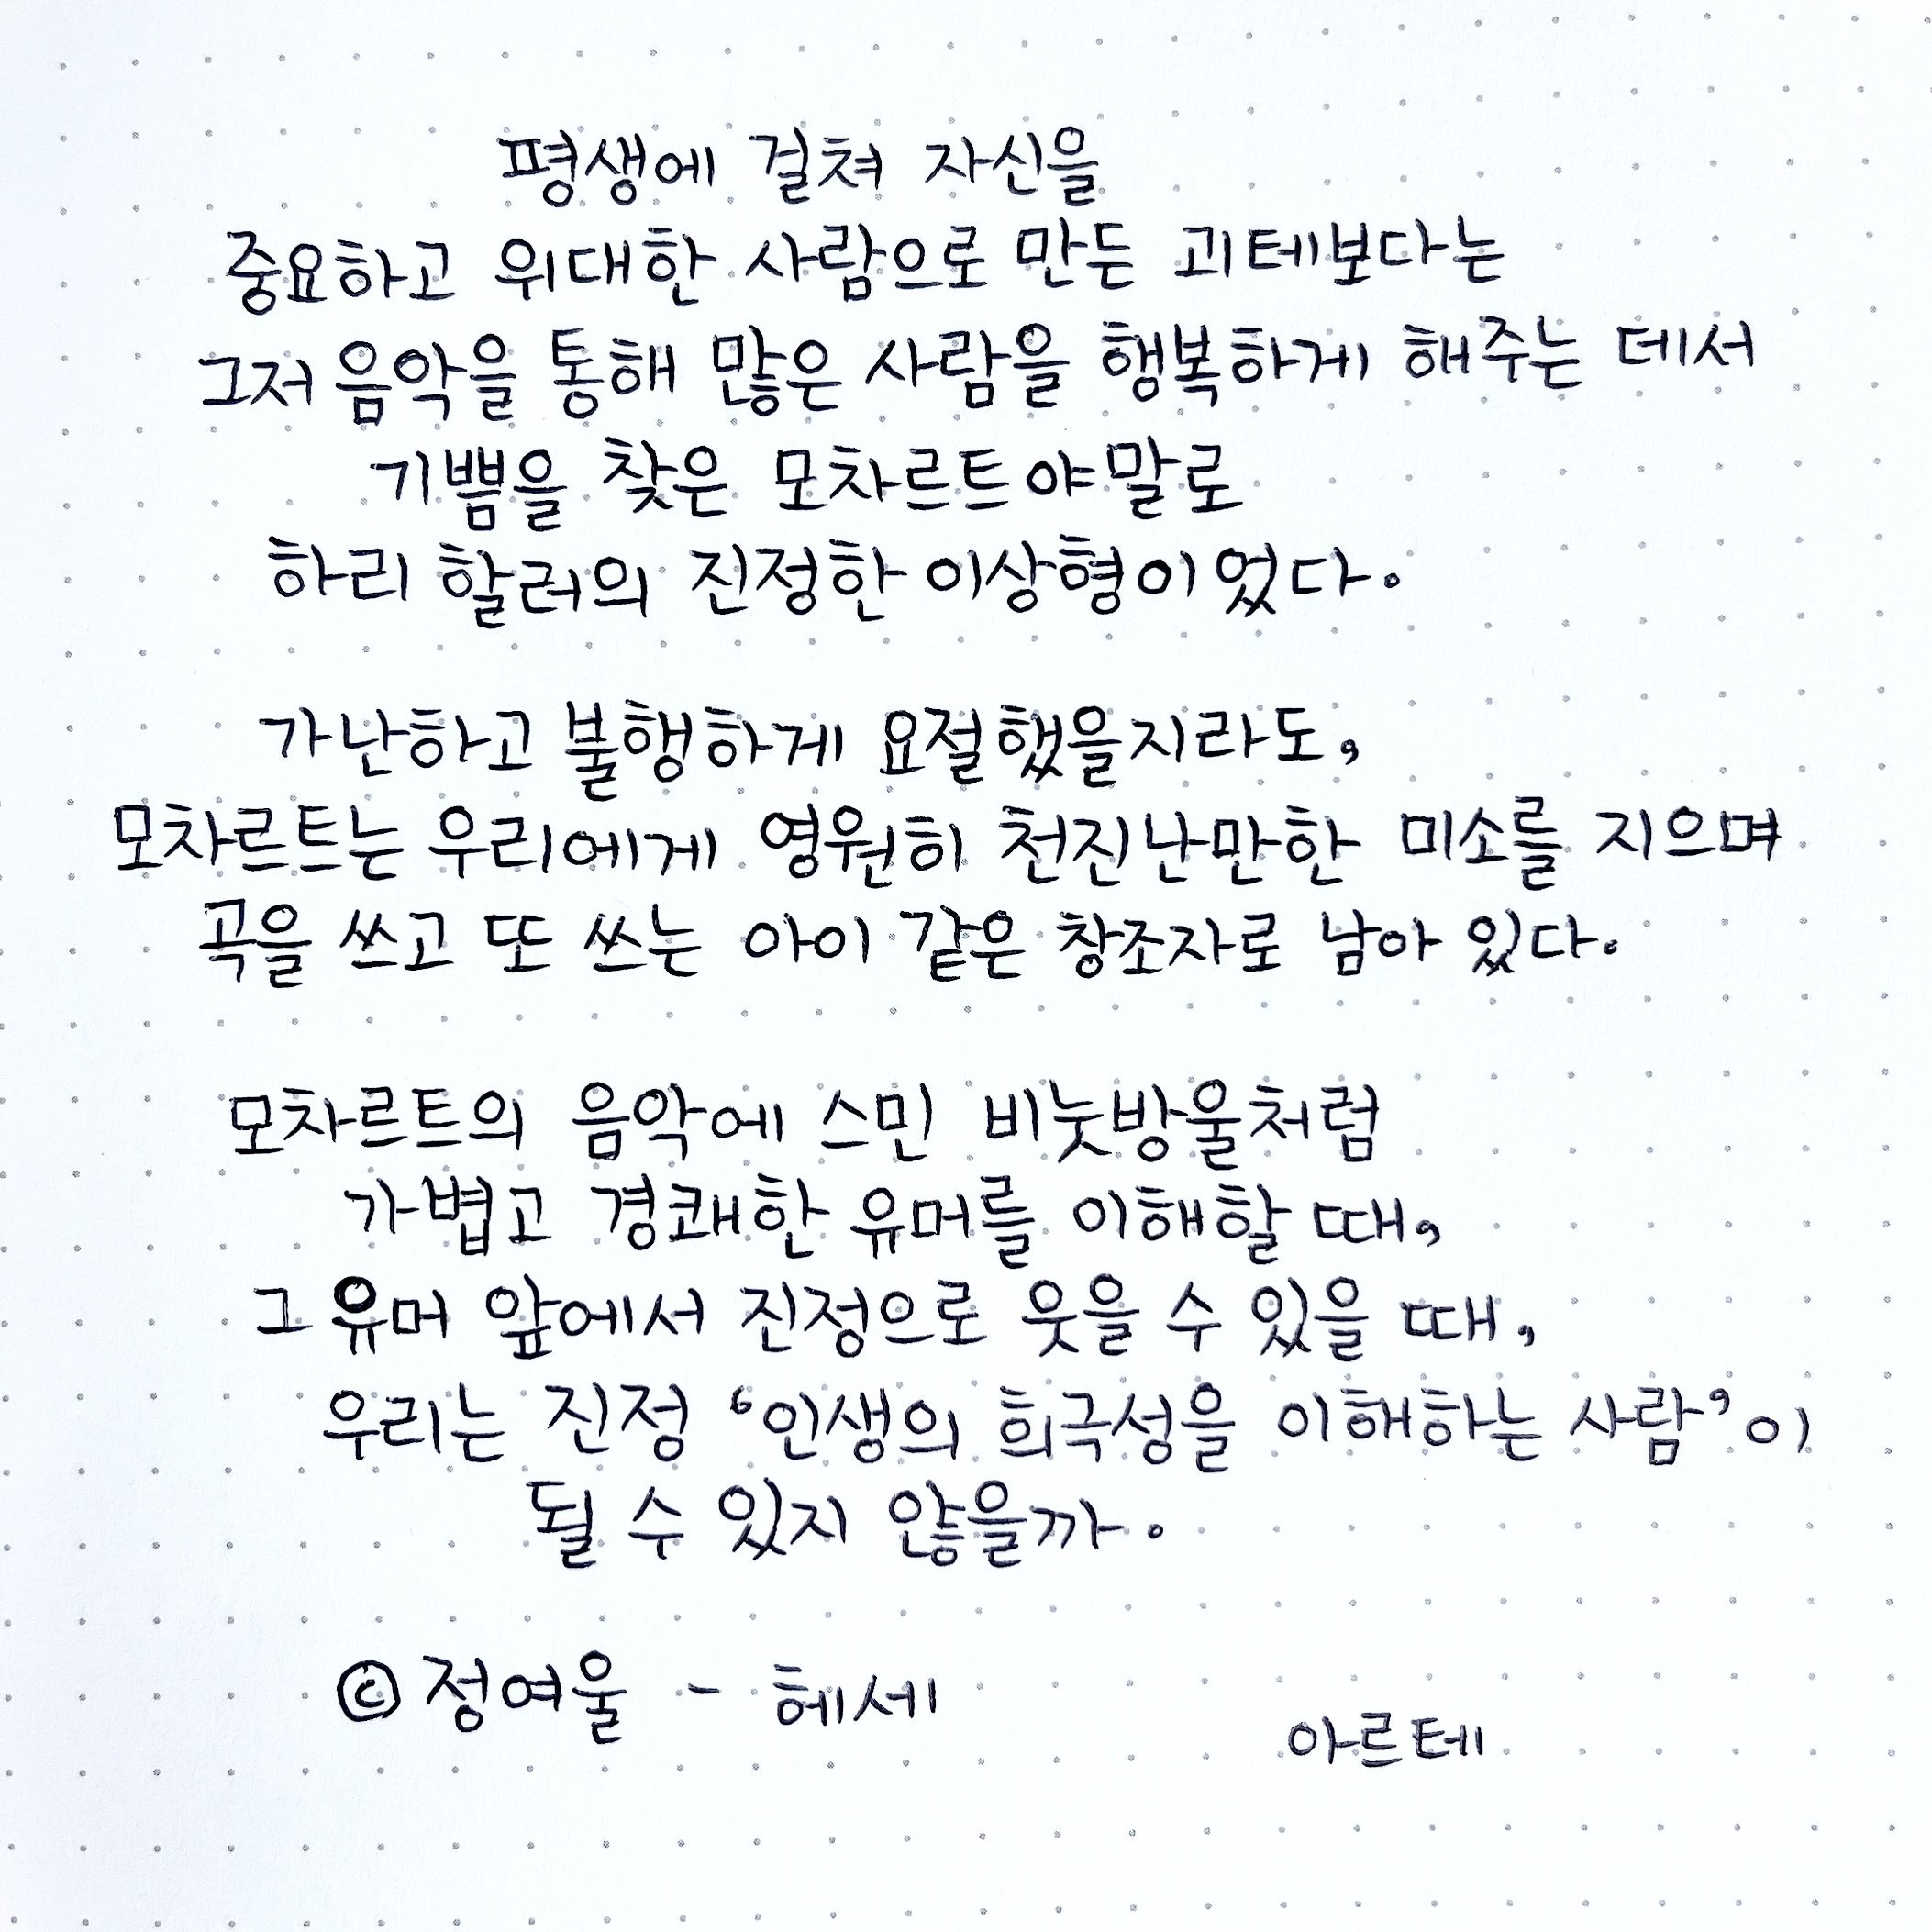 평생에 걸쳐 자신을
중요하고 위대한 사람으로 만든 괴테보다는
그저 음악을 통해 많은 사람을 행복하게 해주는 데서
기쁨을 찾은 모차르트야말로
하리 할러의 진정한 이상형이었다.
가난하고 불행하게 요절했을지라도,
모차르트는 우리에게 영원히 천진난만한 미소를 지으며
곡을 쓰고 또 쓰는 아이 같은 창조자로 남아 있다.
모차르트의 음악에 스민 비눗방울처럼
가볍고 경쾌한 유머를 이해할 때,
그 유머 앞에서 진정으로 웃을 수 있을 때,
우리는 진정 ‘인생의 희극성을 이해하는 사람’이
될 수 있지 않을까.
© 정여울 - 헤세
아르테